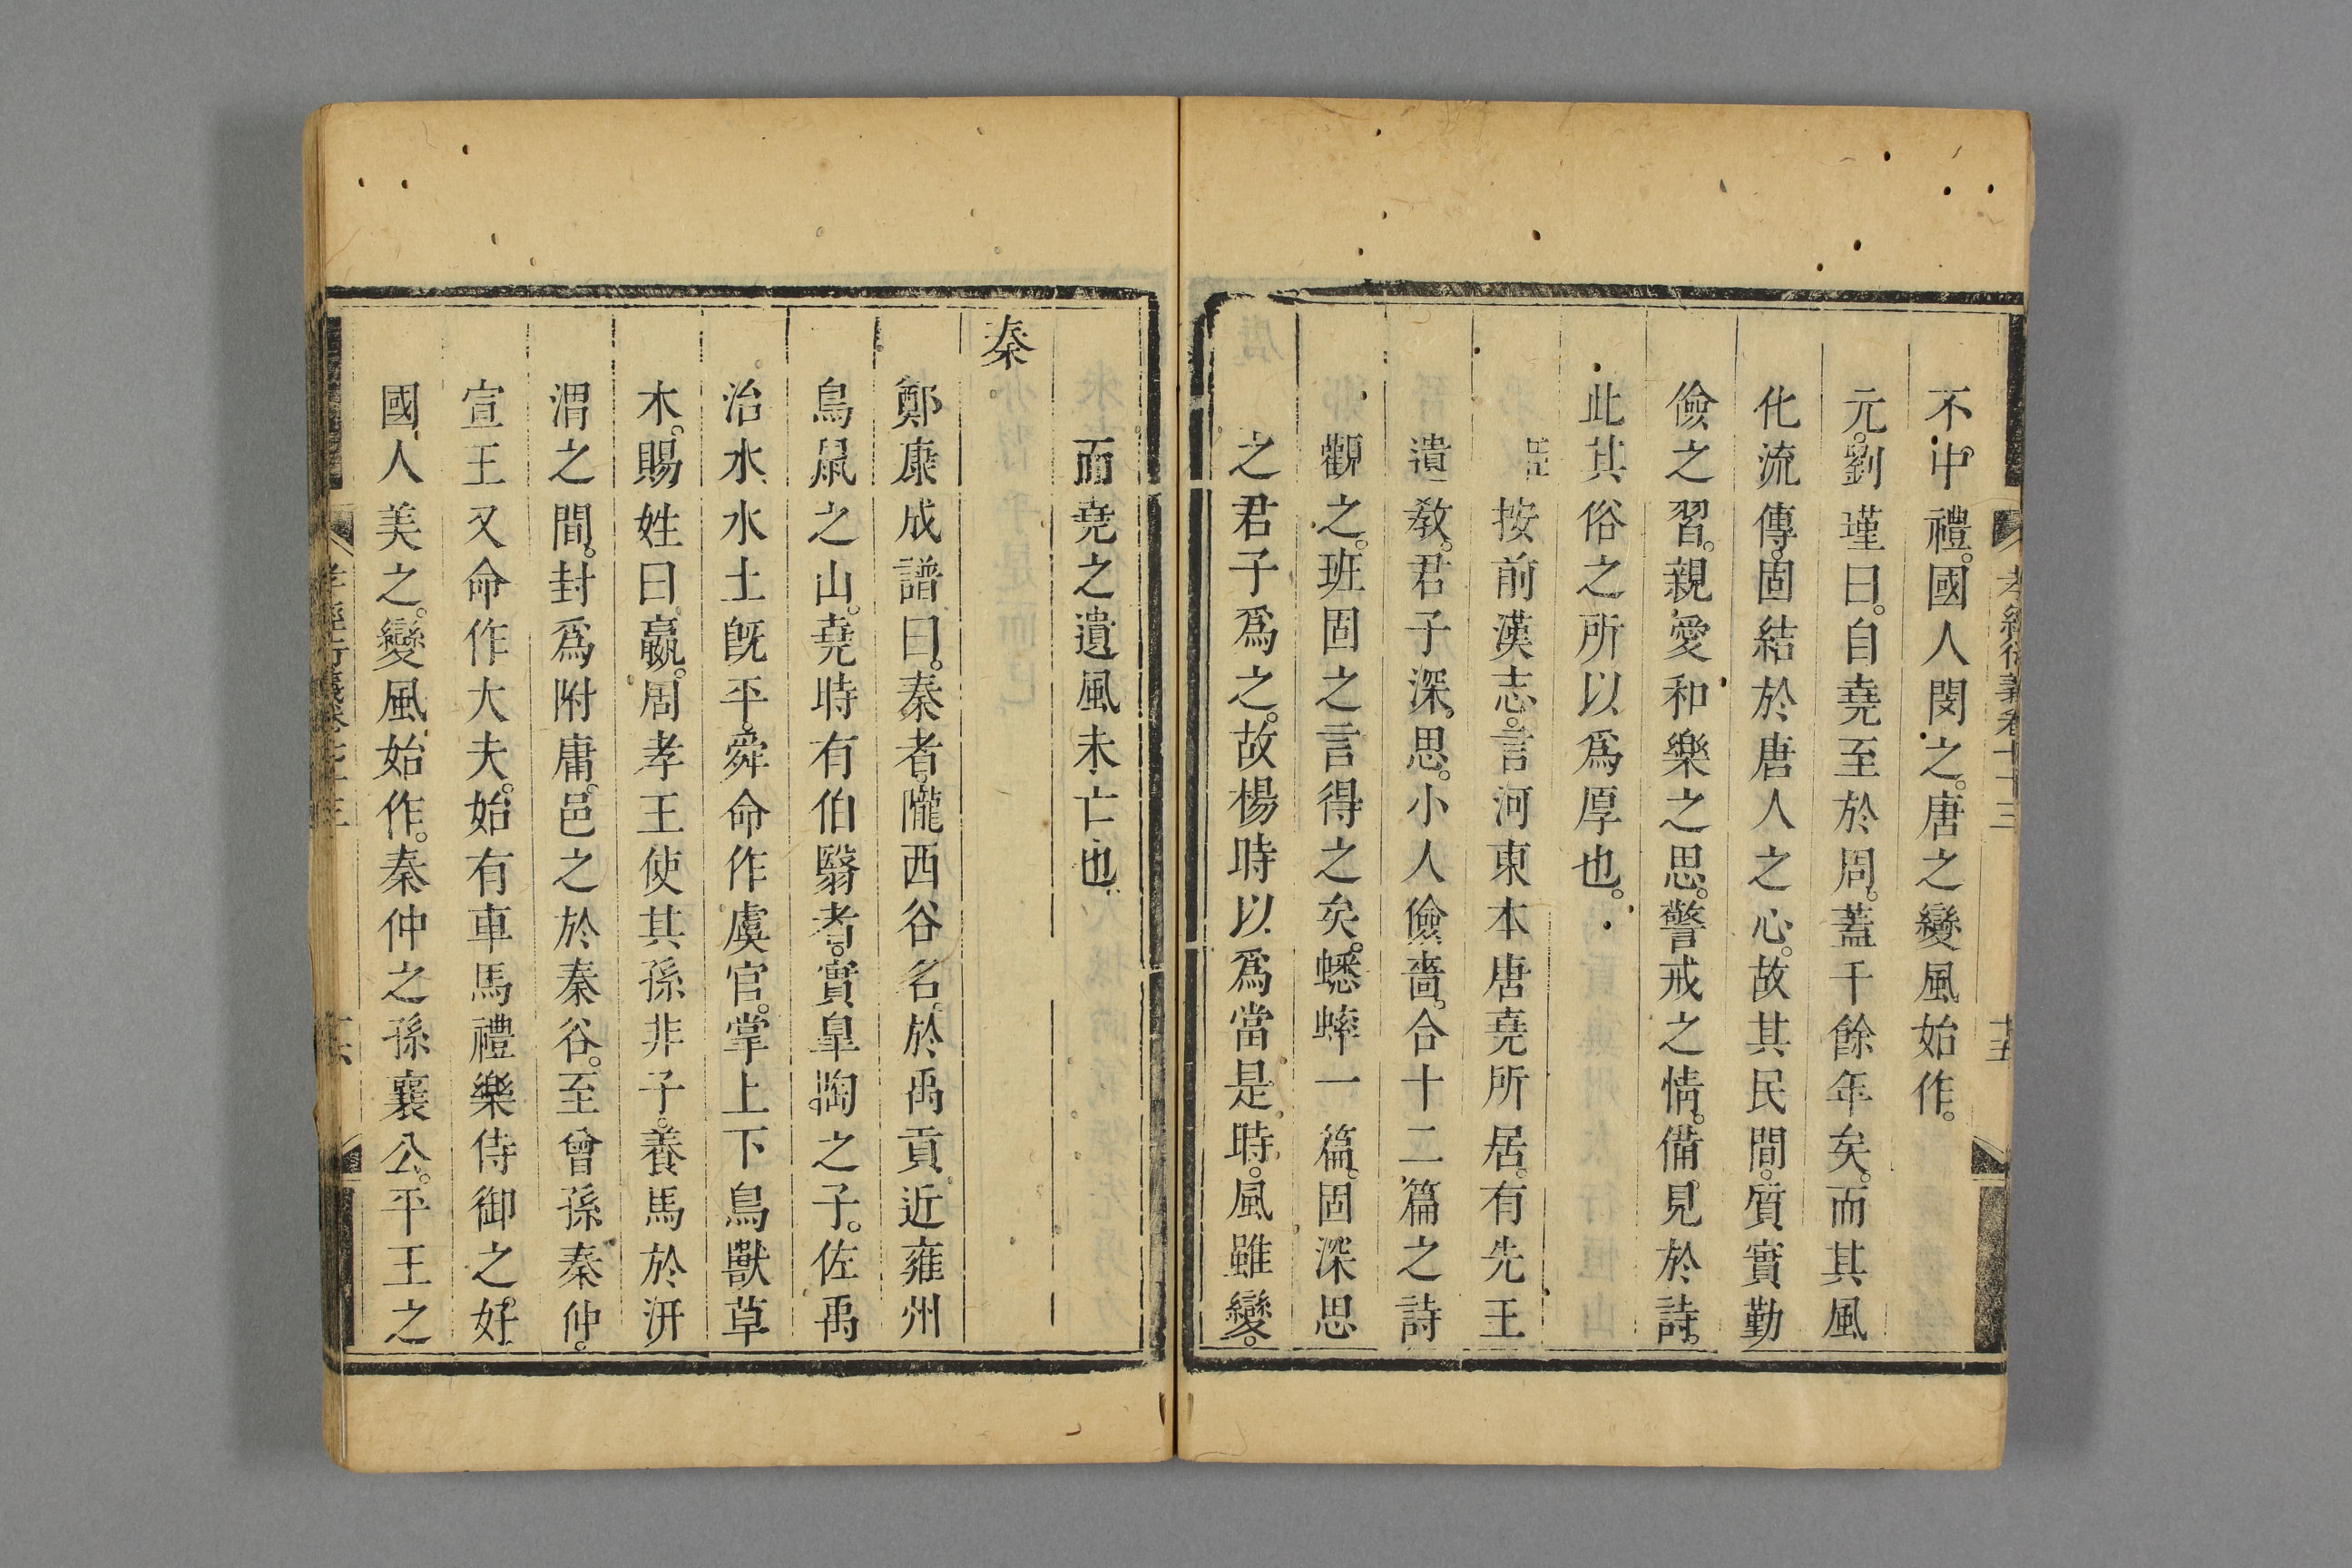 不中禮。國人閔之。唐之變風始作。
元。劉瑾曰。自堯至於周。蓋千餘年矣。而其風
化流傳。固結於唐人之心。故其民間。質實勤
儉之習。親愛和樂之思。警戒之情。備見於詩。
此其俗之所以爲厚也。
臣按前漢志。言河東本唐堯所居。有先王
遺敎。君子深思。小人儉嗇。合十二篇之詩
觀之。班固之言得之矣。蟋蟀一篇。固深思
之君子爲之。故楊時以爲當是時。風雖變。
而堯之遺風未亡也
秦
鄭康成譜曰。秦者。隴西谷名。於禹貢近雍州
鳥鼠之山。堯時有伯翳者。實皐陶之子。佐禹
治水水土旣平。舜命作虞官。掌上下鳥獸草
木。賜姓曰嬴。周孝王使其孫非子。養馬於汧
渭之間。封爲附庸。邑之於秦谷。至曾孫秦仲。
宣王又命作大夫。始有車馬禮樂侍御之好
國人美之。變風始作。秦仲之孫襄公。平王之